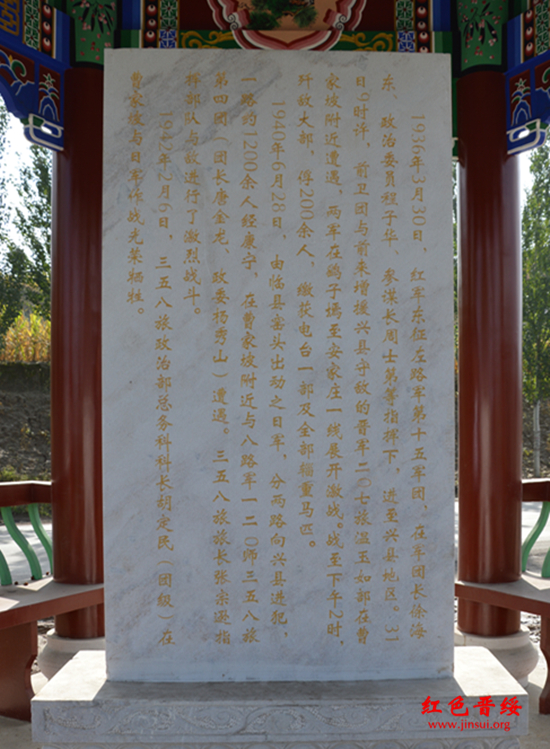 1936年3月30日，红军东征左路军第十五军团，在军团长徐海
东、政治委员程子华、参谋长周士第等指挥下，进至兴县地区。31
日9时许，前卫团与前来增援兴县守敌的晋军二〇七旅温玉如部在曹
家坡附近遭遇，两军在鹞子墕至安家庄一线展开激战。战至下午2时，
歼敌大部，俘1200余人，缴获电台一部及全部辎重马匹。
1940年6月28日，由临县窑头出动之日军，分两路向兴县进犯，
一路约1200余人经康宁，在曹家坡附近与八路军一二〇师三五八旅
第四团（团长唐金龙、政委杨秀山）遭遇。三五八旅旅长张宗逊指
挥部队与敌进行了激烈战斗。
1942年2月6日，三五八旅政治部总务科科长胡定民（团级）在
曹家坡与日军作战光荣牺牲。
红色晋绥
www.jinsui.org